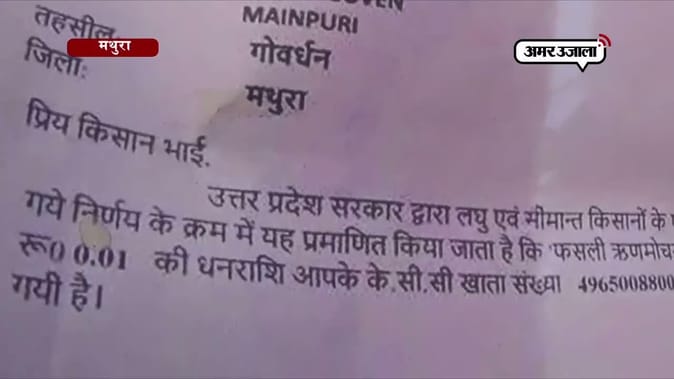 MAINPURI
तहसील:
गोवर्धन
जिला:
मथुरा
प्रिय किसान भाई,
उत्तर प्रदेश सरकार द्वारा लघु एवं सीमान्त किसानों के
गये निर्णय के क्रम में यह प्रमाणित किया जाता है कि 'फसली ऋणमोच
रू0 0.01 की धनराशि आपके के.सी.सी खाता संख्या 4965008800
गयी है।
मथुरा
अमर उजाला